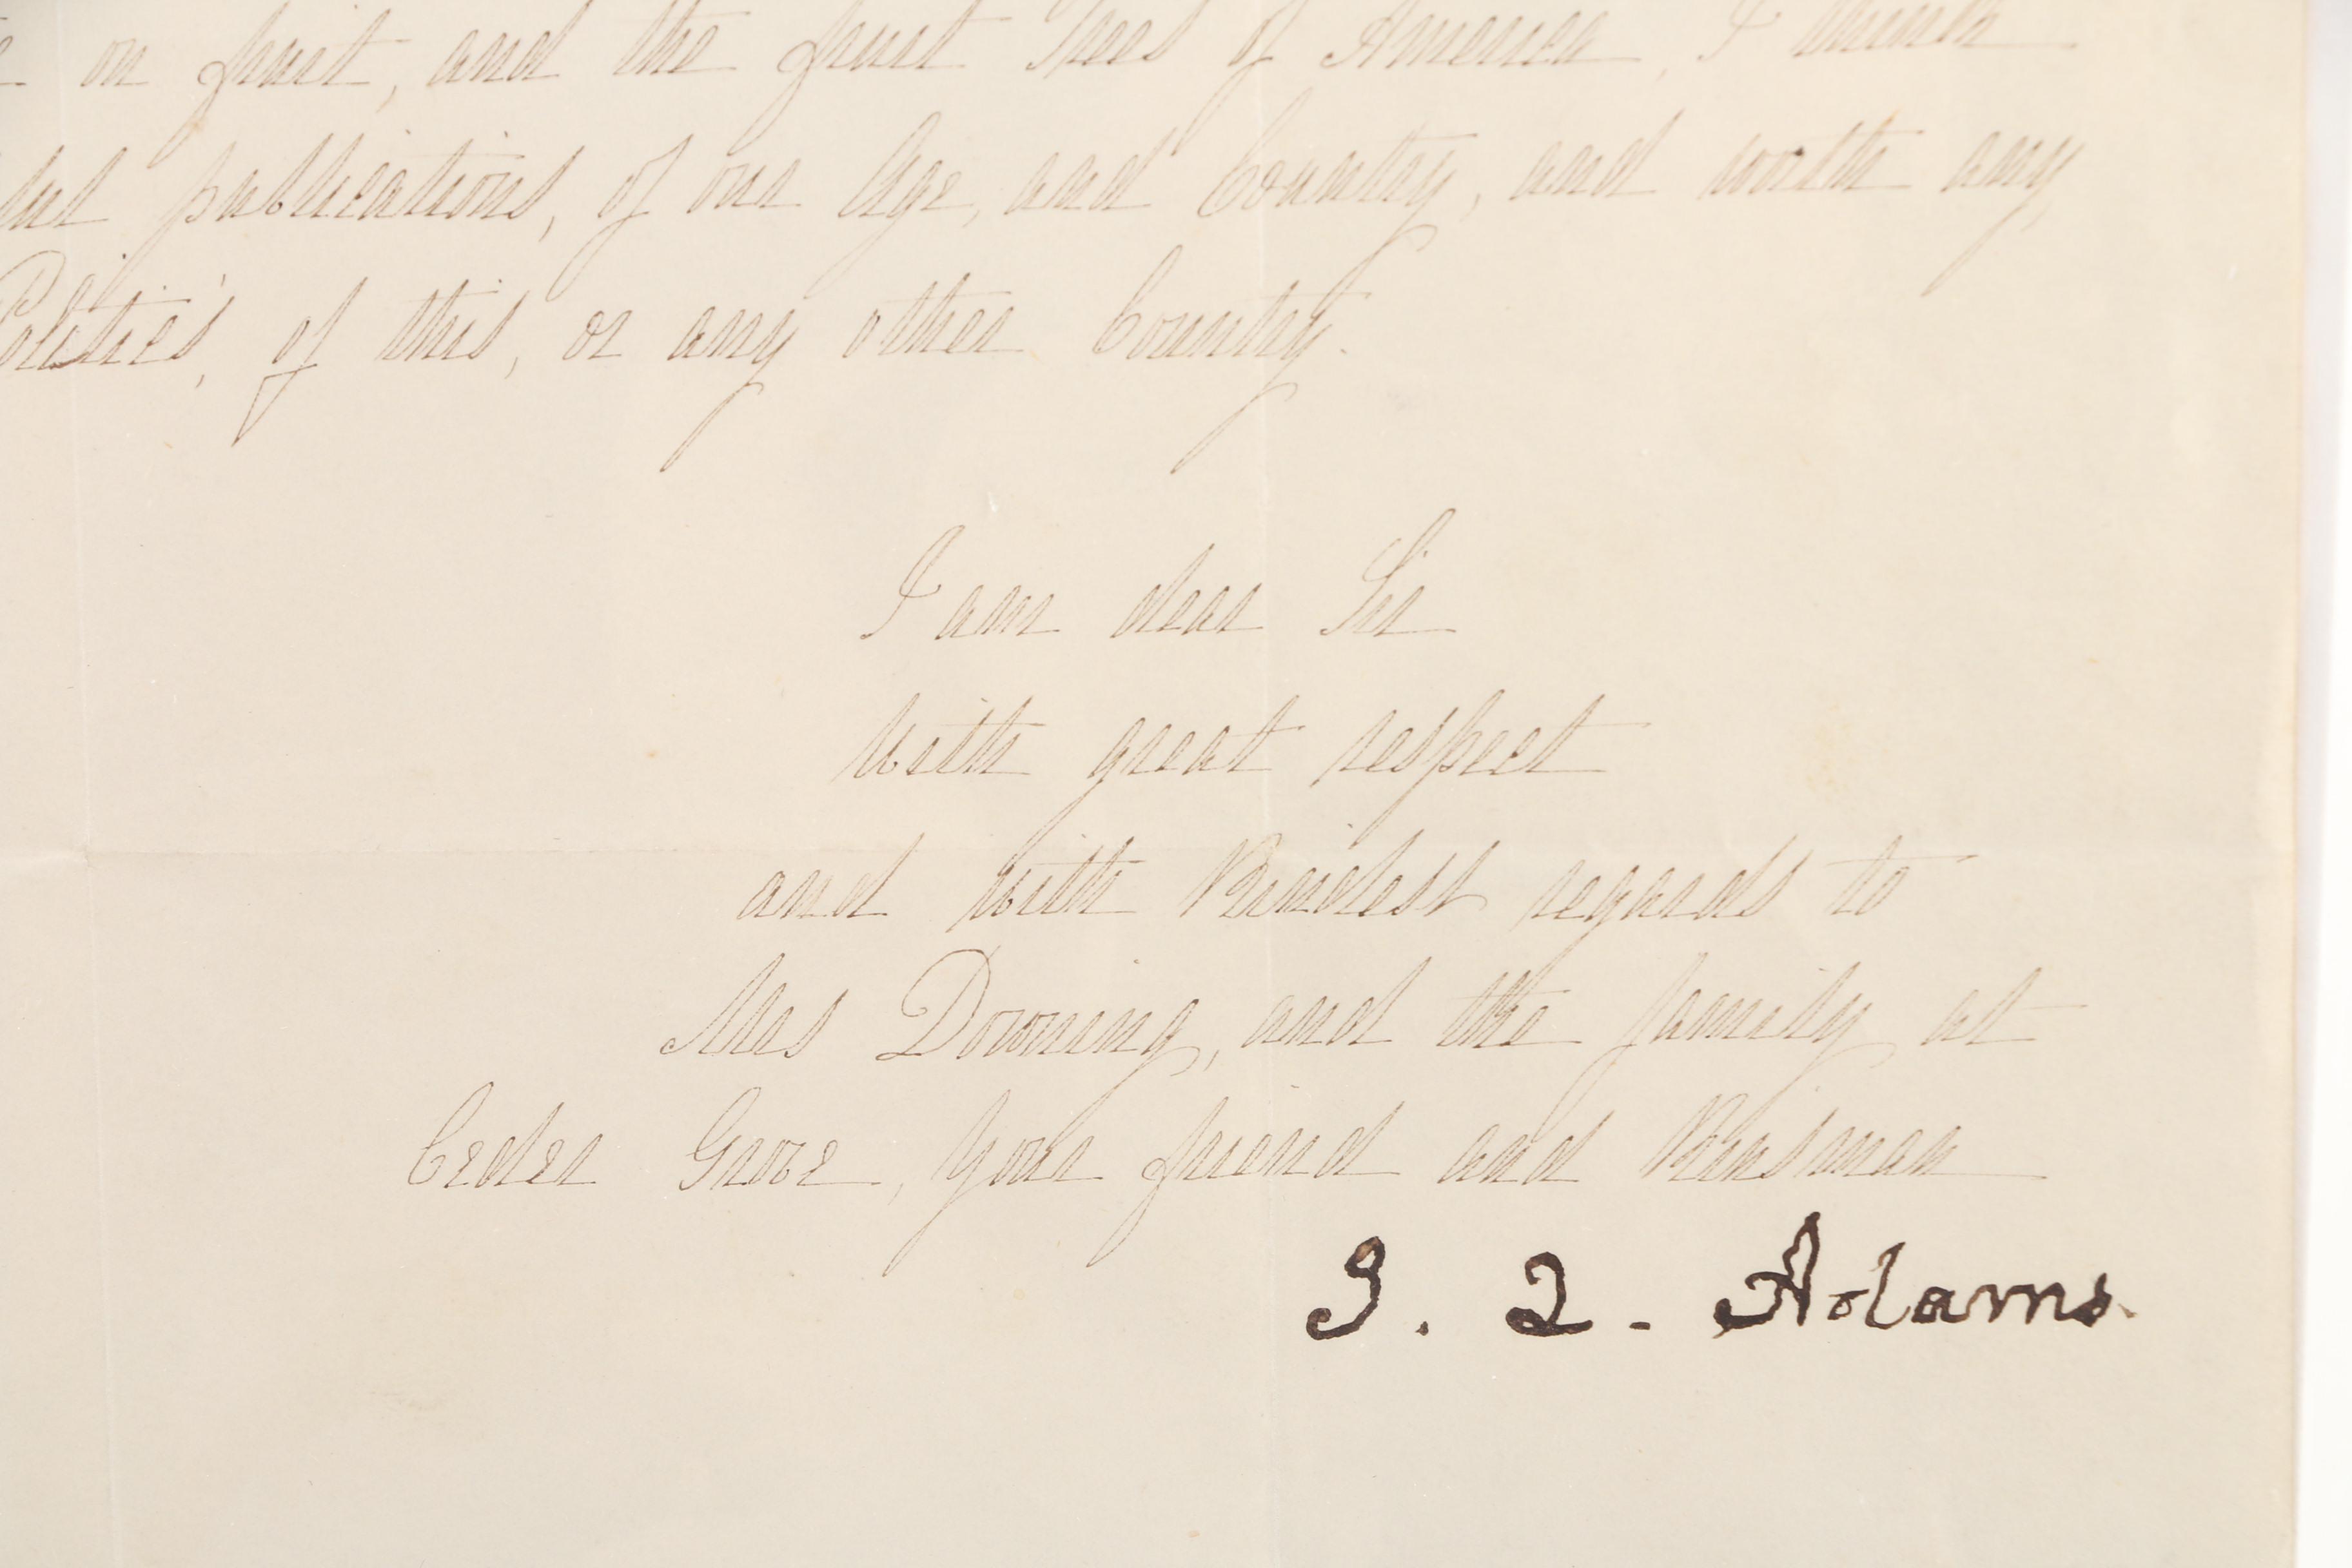 on fruit, and the fruit Trees of America, I think
publications, of our Age, and Country, and worth any
Politics', of this, or any other Country.
I am dear Sir
With great respect
and with Kindest regards to
Mrs Downing, and the family at
Ceder Grove, Your friend and Kinsman
J. Q. Adams.